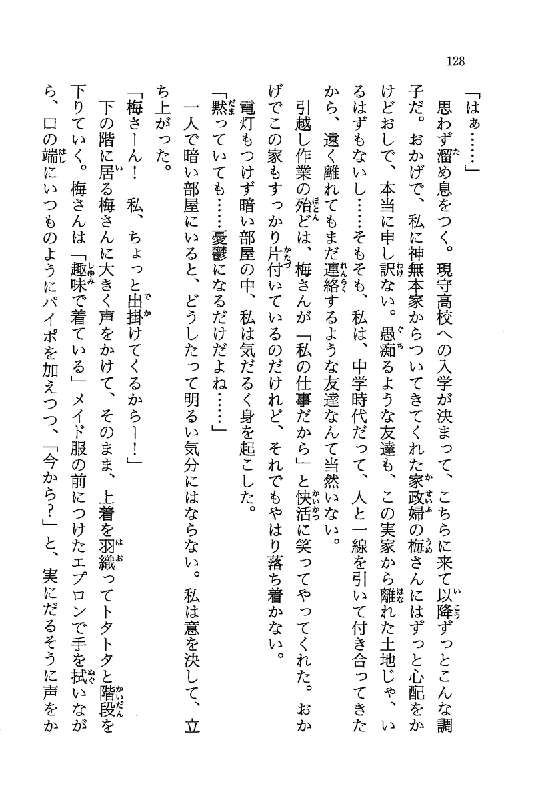 128
「はぁ……」
　思わず溜め息をつく。現守高校への入学が決まって、こちらに来て以降ずっとこんな調
子だ。おかげで、私に神無本家からついてきてくれた家政婦の梅さんにはずっと心配をか
けどおしで、本当に申し訳ない。愚痴るような友達も、この実家から離れた土地じゃ、い
るはずもないし……そもそも、私は、中学時代だって、人と一線を引いて付き合ってきた
から、遠く離れてもまだ連絡するような友達なんて当然いない。
　引越し作業の殆どは、梅さんが「私の仕事だから」と快活に笑ってやってくれた。おか
げでこの家もすっかり片付いているのだけれど、それでもやはり落ち着かない。
　電灯もつけず暗い部屋の中、私は気だるく身を起こした。
「黙っていても……憂鬱になるだけだよね……」
　一人で暗い部屋にいると、どうしたって明るい気分にはならない。私は意を決して、立
ち上がった。
「梅さーん！　私、ちょっと出掛けてくるからー！」
　下の階に居る梅さんに大きく声をかけて、そのまま、上着を羽織ってトタトタと階段を
下りていく。梅さんは「趣味で着ている」メイド服の前につけたエプロンで手を拭いなが
ら、口の端にいつものようにパイポを加えつつ、「今から？」と、実にだるそうに声をか